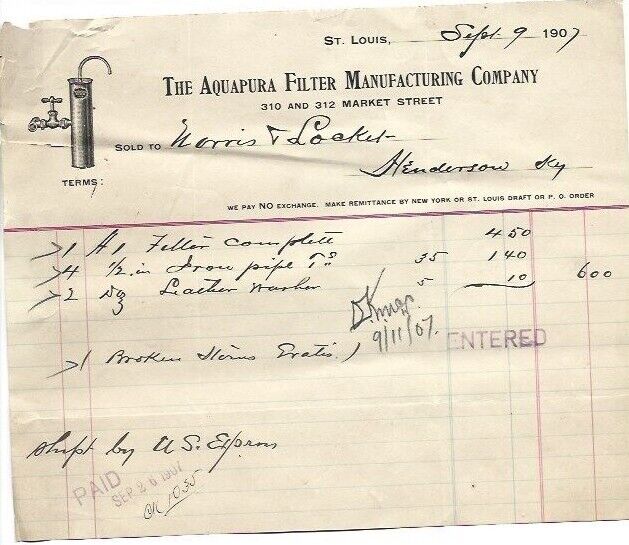 St. Louis, Sept 9 1907
The Aquapura Filter Manufacturing Company
310 AND 312 MARKET STREET
SOLD TO Norris & Locket
Henderson Ky
TERMS:
WE PAY NO EXCHANGE. MAKE REMITTANCE BY NEW YORK OR ST. LOUIS DRAFT OR P. O. ORDER
1 #1 Filter complete 450
4 1/2 in Iron pipe Ts 35 140
2 Dz Leather Washer 5 10 600
9/11/07.
ENTERED
1 Broken Gratis
Shipt by U.S. Express
PAID
SEP 26 1907
CK 1035